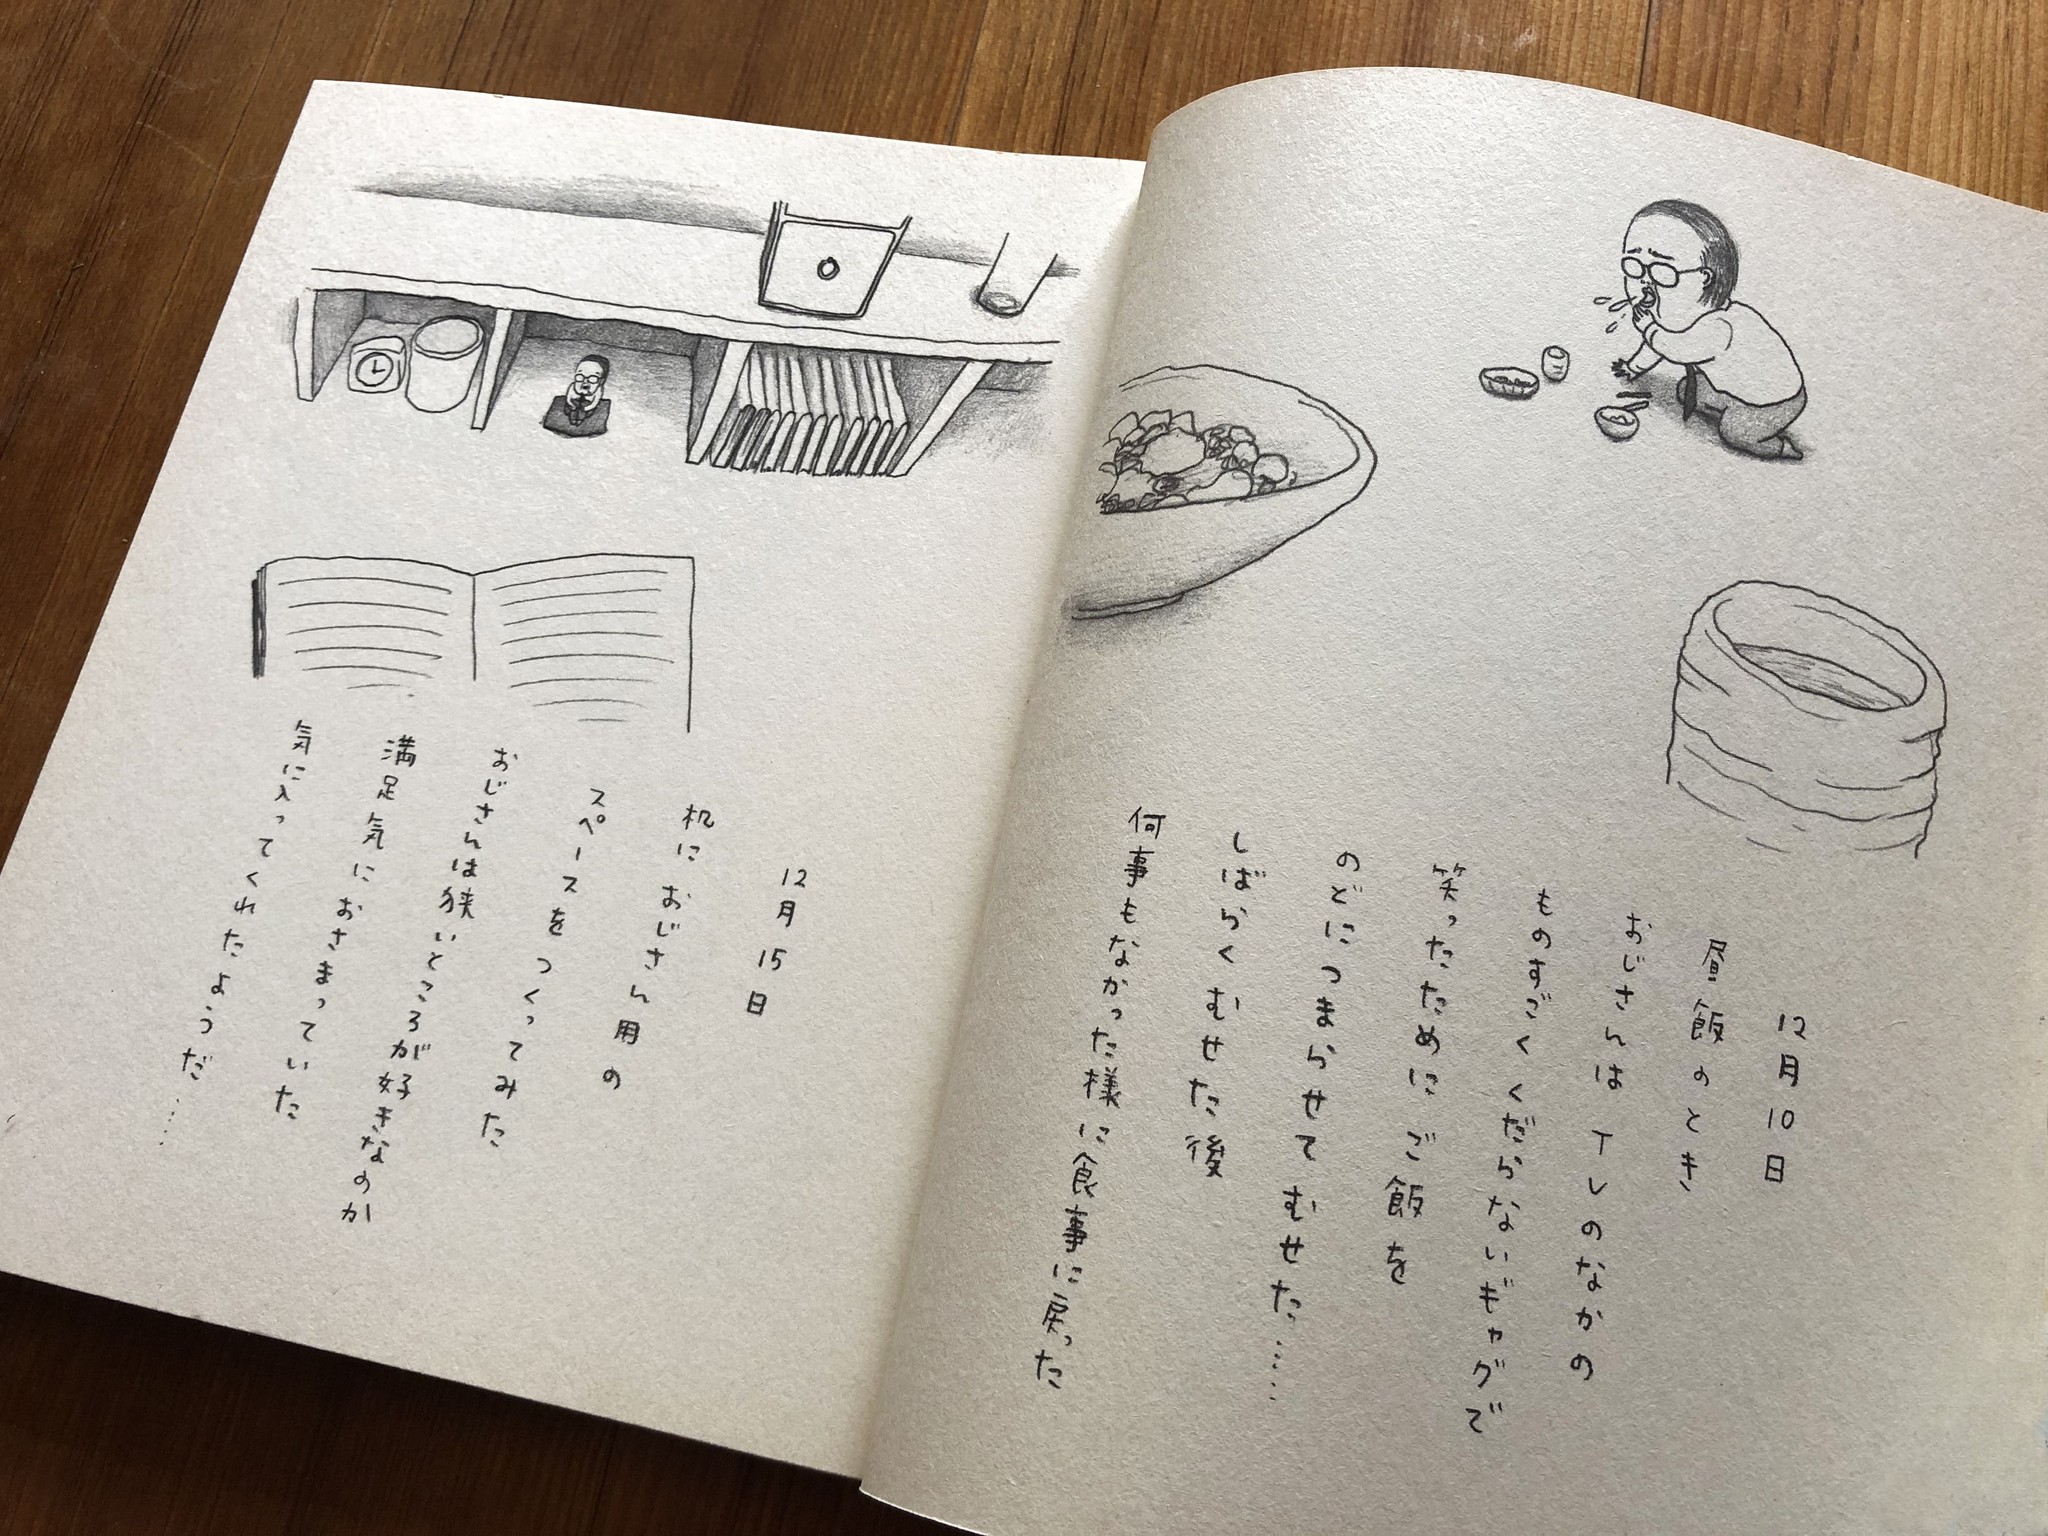 12月10日
昼飯のとき
おじさんは TVのなかの
ものすごくくだらないギャグで
笑ったためにご飯を
のどにつまらせてむせた……
しばらくむせた後
何事もなかった様に食事に戻った
12月15日
机におじさん用の
スペースをつくってみた
おじさんは狭いところが好きなのか
満足気におさまっていた
気に入ってくれたようだ……